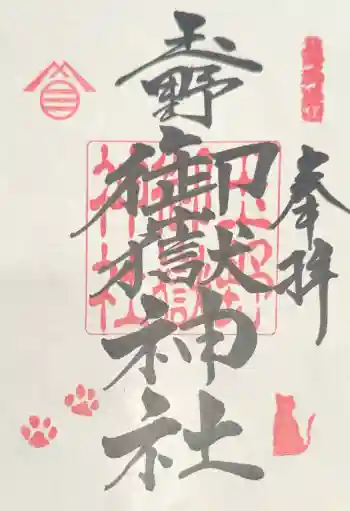 奉拝
玉野
御嶽
神社